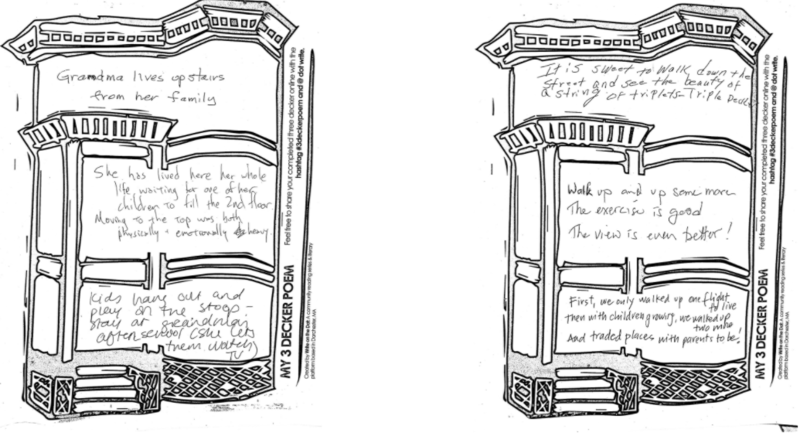 Grandma lives upstairs
from her family
She has lived here her whole
life waiting for one of her
children to fill the 2nd floor.
Moving to the top was both
physically + emotionally heavy.
Kids hang out and
play on the stoop -
stay at grandma's
afterschool (she lets
them watch
TV
MY 3 DECKER POEM
Feel free to share your completed three decker online with the
hashtag #3deckerpoem and @ dot write.
Created by Write on the Dot: A community reading series & literary
platform based in Dorchester, MA
It is sweet to walk down the
street and see the beauty of
a string of triplets - Triple Decker
Walk up and up some more
The exercise is good
The view is even better!
First, we only walked up one flight
to live
then with children growing, we walked up
two more
And traded places with parents to be!
MY 3 DECKER POEM
Feel free to share your completed three decker online with the
hashtag #3deckerpoem and @ dot write.
Created by Write on the Dot: A community reading series & literary
platform based in Dorchester, MA